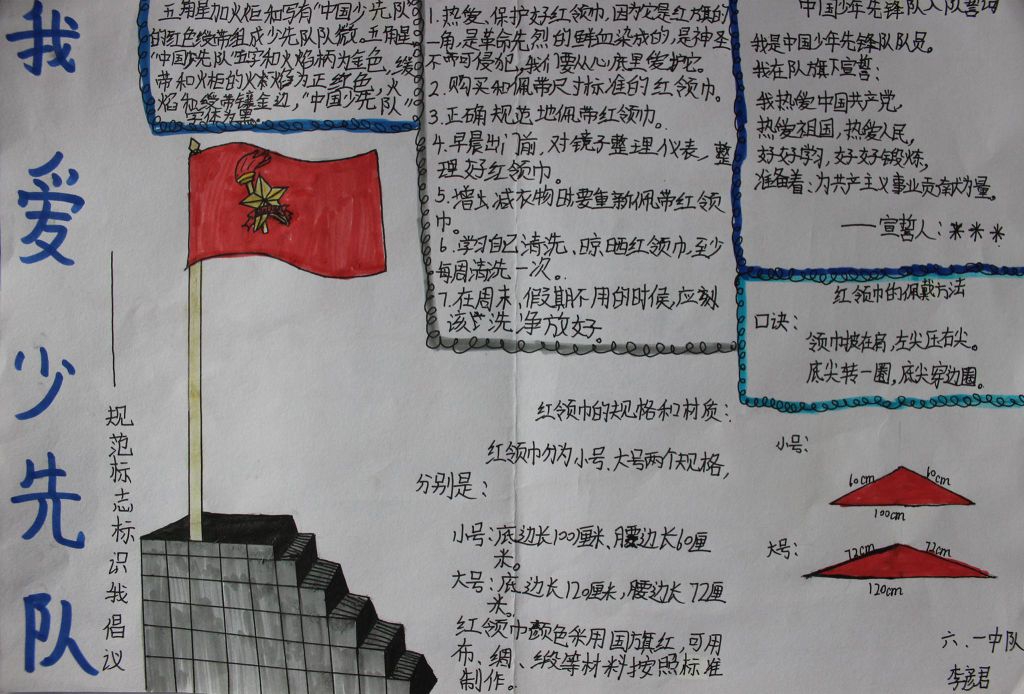 我爱少先队
——规范标志标识我倡议
五角星加火炬和写有“中国少先队”
的红色绶带组成少先队队徽。五角星
“中国少先队”五字和火焰柄为金色，绶
带和火柜的火焰为正红色，火
焰和绶带镶金边，“中国少先队”
字体为黑。
1.热爱、保护好红领巾，因为它是红旗的
一角，是革命先烈的鲜血染成的，是神圣
不可侵犯，我们要从心底里爱护它。
2.购买和佩带尺寸标准的红领巾。
3.正确规范地佩带红领巾。
4.早晨出门前，对镜子整理仪表，整
理好红领巾。
5.增加减衣物时要重新佩带红领
巾。
6.学习自己清洗、晾晒红领巾，至少
每周清洗一次。
7.在周末、假期不用的时候，应刻
该洗净放好。
中国少年先锋队入队誓词
我是中国少年先锋队队员。
我在队旗下宣誓：
我热爱中国共产党，
热爱祖国，热爱人民，
好好学习，好好锻炼，
准备着：为共产主义事业贡献力量。
——宣誓人：米米米
红领巾的佩戴方法
口诀：
领巾披在肩，左尖压右尖。
底尖转一圈，底尖穿边圈。
红领巾的规格和材质：
红领巾分为小号、大号两个规格，
分别是：
小号：底边长100厘米、腰边长60厘
米。
大号：底边长120厘米，腰边长72厘
米。
红领巾颜色采用国旗红，可用
布、绸、缎等材料按照标准
制作。
小号：
60cm
60cm
100cm
大号：
72cm
72cm
120cm
六、一中队
李彦君